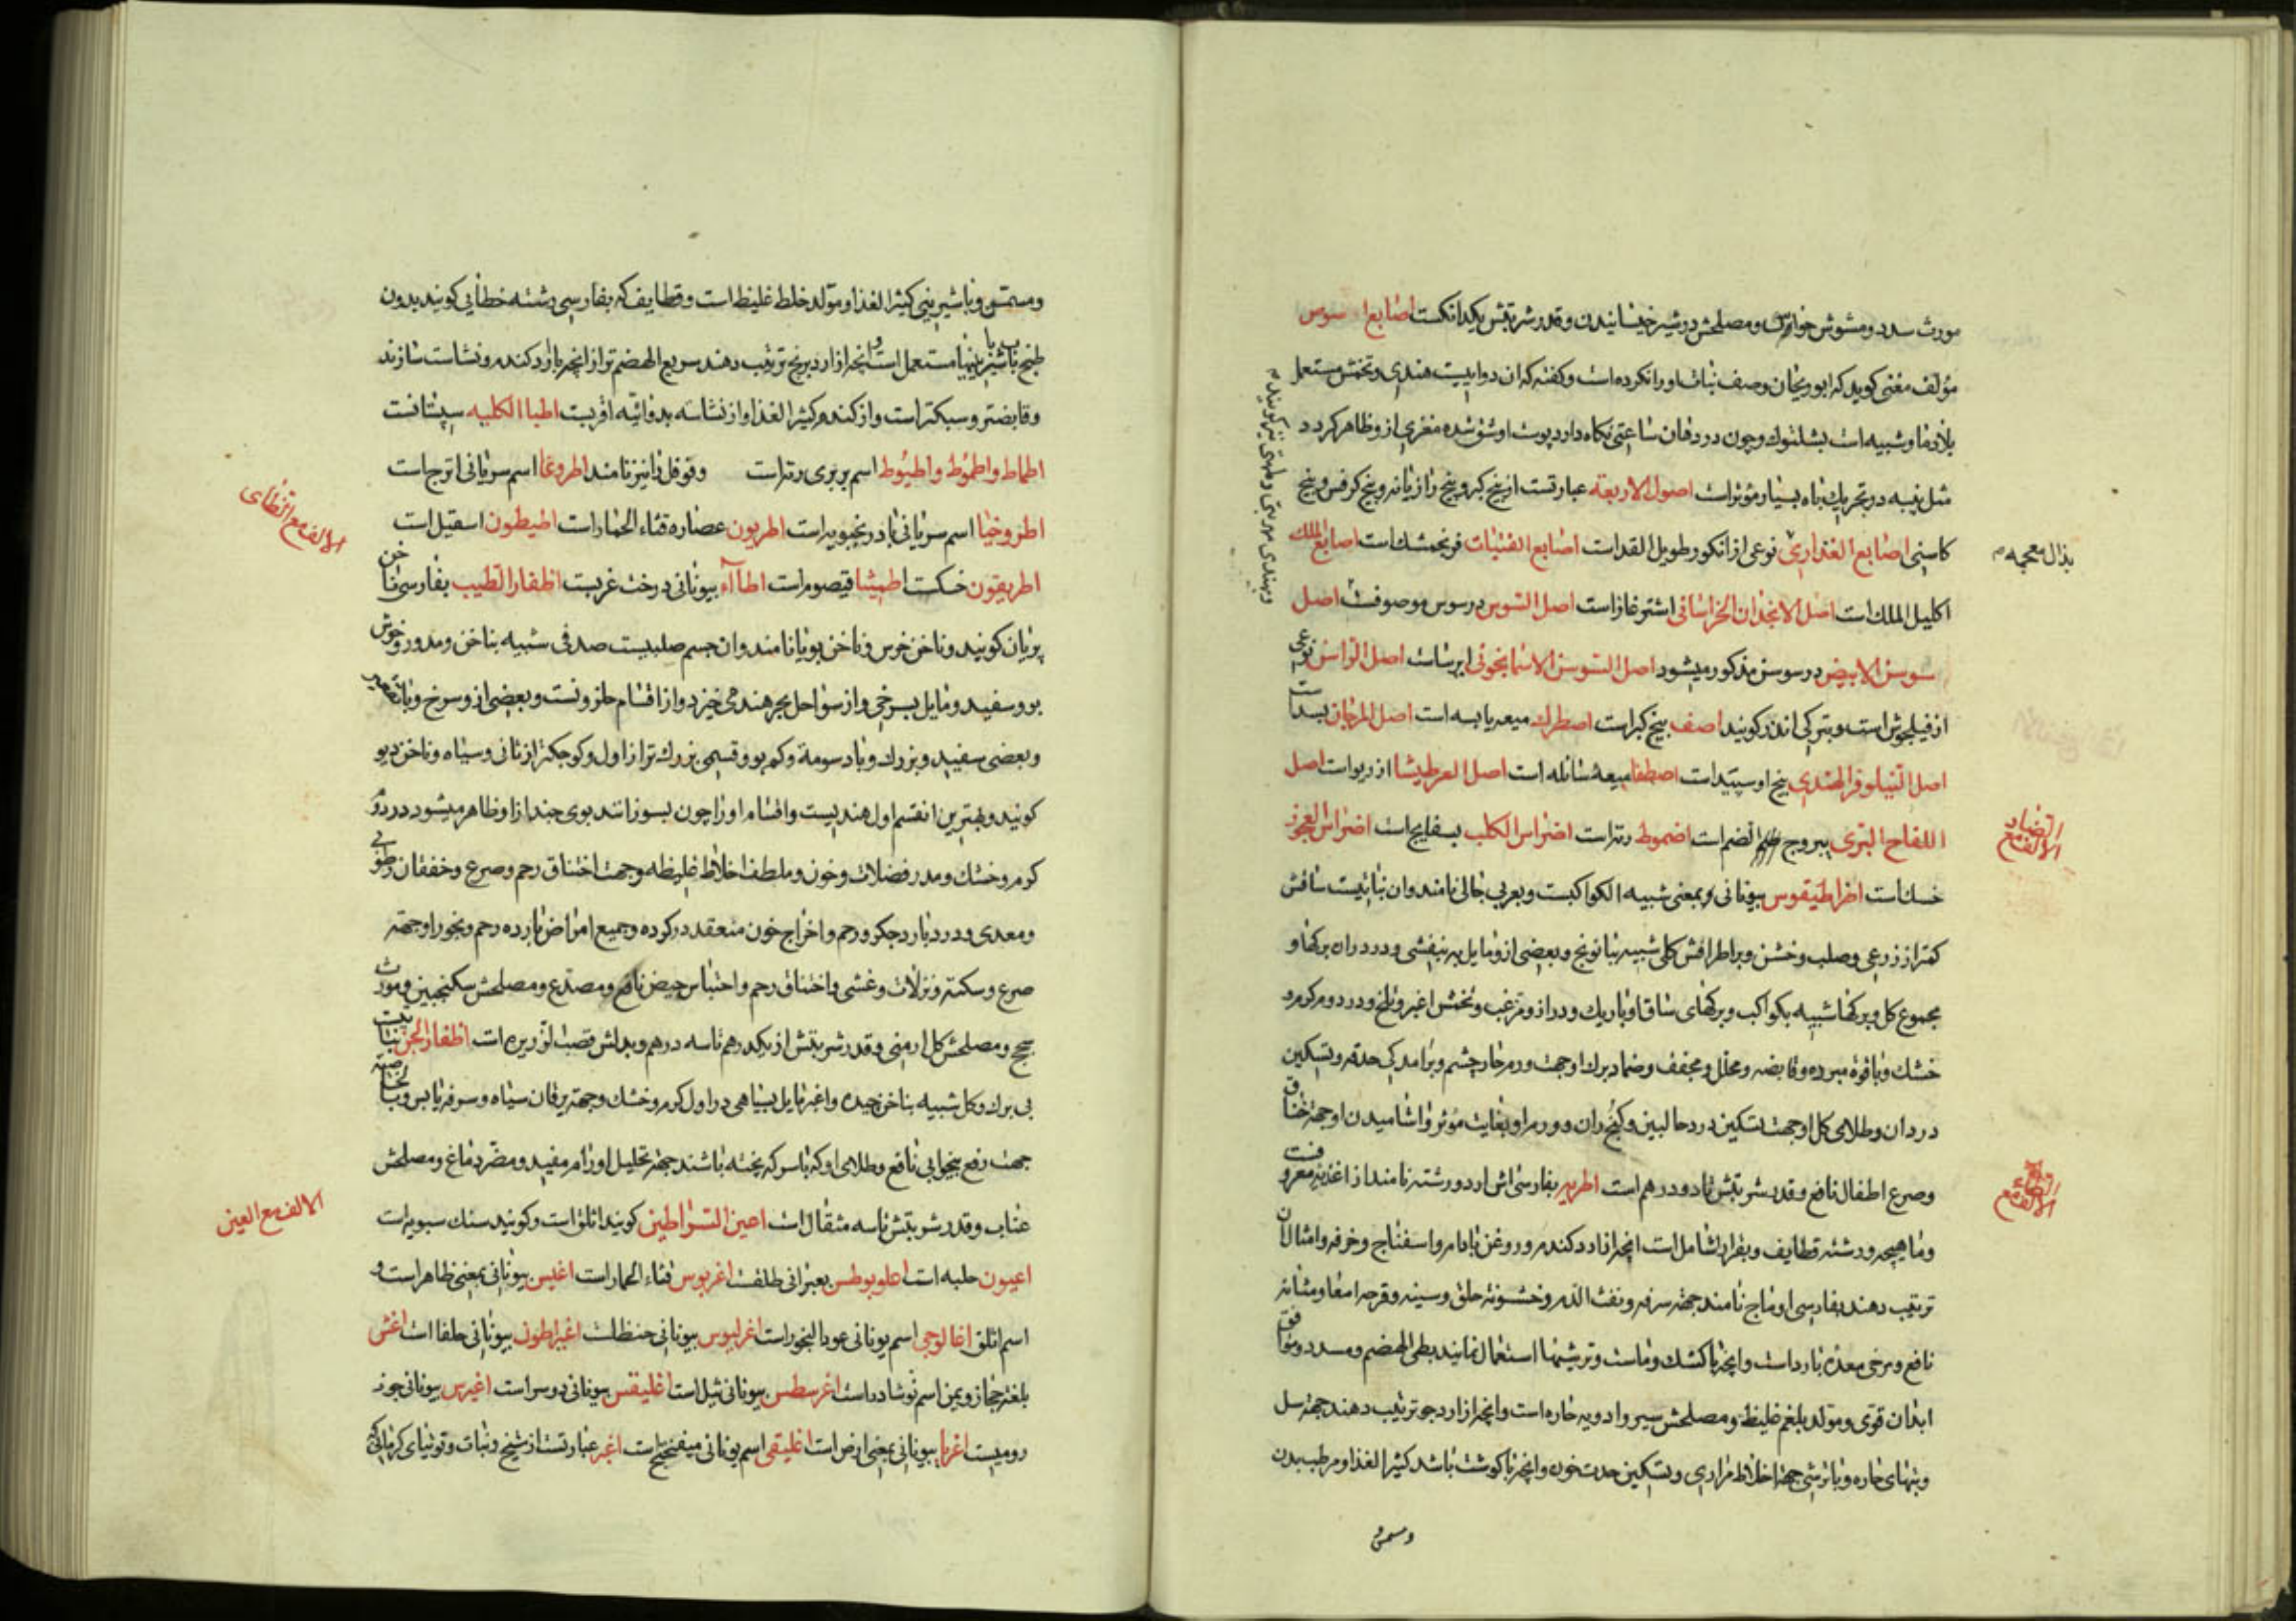 مورث سدد و مشوش حواس و مصلحش در شیر خیسانیدن و قدر شربتش یکدانکست اصابع
مؤلف مغنی کوید که ابوریحان وصف نبات او را نکرده است و کفته که ان دواییست هندی و تخمش مستعمل
بلاد ما و شبیه است بشلتوک و چون در دهان ساعتی نکاه دارد پوست او شق شده مغزی از و ظاهر کردد
مثل پنبه در تحریک باه بسیار مؤثر است اصول الاربعة عبارتست از بیخ کبر و بیخ رازیانه و بیخ کرفس و بیخ
کاسنی اصابع العذاری نوعی از انکور طویل القد است اصابع الفتیات فرنجمشک است اصابع الملک
بذال معجمه
اکلیل الملک است اصل الانجذان الخراسانی اشترغاز است اصل السوس در سوس موصوفست اصل
سوسن الابیض در سوسن مذکور میشود اصل السوسن الاسمانجونی ایرسا است اصل الراسن نوعی
از فیلجوش است و بترکی اندز کویند اصف بیخ کبر است اصطرک میعه یابسه است اصل المرجان بسد است
اصل النیلوفر الهندی بیخ او سپید است اصطفا میعهٔ سائله است اصل العرطنیثا از ریو است اصل
اللفاح البری یبروج الضم است اضموط رته است اضراس الکلب بسفایج است اضراس العجوز
الالف مع الضاد
خسک است اطراطیقوس بیونانی بمعنی شبیه الکواکبست و بعربی حالبی نامند و ان نباتیست ساقش
کمتر از ذرعی و صلب و خشن و بر اطرافش کلی شبیه ببابونج و بعضی از و مایل به بنفشی و در دوران برکها و
مجموع کل و برکها شبیه بکواکب و برکهای ساق او باریک و دراز و مزغب و تخمش اغبر و تلخ و در دوم کرم و
خشک و با قوة مبرده و قابضه و محلل و مجفف و ضماد برک او جهت ورم حار چشم و برامدکی حدقه و تسکین
درد ان و طلای کل او جهت تسکین درد حالبین و کنج ران و ورم او بغایت مؤثر و اشامیدن او جهة خناق
و صرع اطفال نافع و قدر شربتش تا دو درهم است اطریه بفارسی اش ارد و رشته نامند از اغذیه معروفست
الالف مع الطاء
و ماهیچه و رشته قطایف و بغرا را شامل است انچه از ارد کندم و روغن بادام و اسفناج و خرفه و امثال ان
ترتیب دهند بفارسی اوماج نامند جهة سرفه و نفث الدم و خشونة حلق و سینه و قرحه امعا و مثانه
نافع و مرخی معدهٔ بارد است و انچه با کشک و ماست و ترشیها استعمال نمایند بطی الهضم و مسدد و موافق
ابدان قوی و مولد بلغم غلیظ و مصلحش سیر و ادویه حاره است و انچه از ارد جو ترتیب دهند جهة سل
و تبهای حاره و با ترشی جهة اخلاط مراری و تسکین حدت خون و انچه با کوشت باشد کثیر الغذا و مرطب بدن
و مسمن
و مسمن و با شیرینی کثیر الغذا و مولد خلط غلیظ است و قطایف که بفارسی رشته خطایی کویند بدون
طبخ با شیرینیها مستعمل است و انچه از ارد برنج ترتیب دهند سریع الهضم تر از انچه با ارد کندم و نشاست سازند
و قابضتر و سبکتر است و از کندم کثیر الغذا و از نشاسه بدوائیه اقربست اطبا الکلبه سپستانست
اطماط و اطموط و اطیوط اسم بربری رته است و فوفل را نیز نامند اطروغا اسم سریانی اترج است
الالف مع الظای
اطروخیا اسم سریانی بادرنجبویه است اطریون عصاره قثاء الحمار است اطیطون اسقیل است
اطریقون خسکست اطمیثا قیصوم است اطاآء بیونانی درخت غربست اظفار الطیب بفارسی ناخن
پریان کویند و ناخن خرس و ناخن بویا نامند و ان جسم صلبیست صدفی شبیه بناخن و مدور و خوش
بو و سفید و مایل بسرخی و از سواحل بحر هند می خیزد و از اقسام حلزونست و بعضی از و سرخ و با تقعیر
و بعضی سفید و بزرک و با دسومة و کم بو و قسمی بزرک تر از اول و کوجکتر از ثانی و سیاه و ناخن دیو
کویند و بهترین اقسم اول هندیست و اقسام او را چون بسوزانند بوی جند از او ظاهر میشود در دوم
کرم و خشک و مدر فضلات و خون و ملطف اخلاط غلیظه و جهت اختناق رحم و صرع و خفقان رطوبی
و معدی و درد بارد جکر و رحم و اخراج خون منعقد در کرده و جمیع امراض بارده رحم و بخور او جهة
صرع و سکته و نزلات و غشی و اختناق رحم و احتباس حیض نافع و مصدع و مصلحش سکنجبین و مورث
سحج و مصلحش کل ارمنی و قدر شربتش از یکدرهم تا سه درهم و بدلش قصب الذریره است اظفار الجن نباتیست
بی برک و کل شبیه بناخن چیده و اغبر مایل بسیاهی در اول کرم و خشک و جهة یرقان سیاه و سوفه یابس و بالخاصیة
جهت رفع بیخوابی نافع و طلای او که با سرکه پخته باشند جهة تحلیل اورام مفید و مضر دماغ و مصلحش
عناب و قدر شربتش تا سه مثقال است اعین السراطین کویند اثلق است و کویند سنک سبویه است
الالف مع العین
اعیون حلبه است اعلوبوطس بعبرانی طلقست اغریوس قثاء الحمار است اغیس بیونانی بمعنی ظاهر است و
اسم اثلق اغالوجی اسم یونانی عود البخور است اغرلیوس بیونانی حنظلست اغیراطون بیونانی حلفا است اغش
بلغة حجاز و یمن اسم نوشادر است اغرسطس بیونانی ثیل است اغلیقس بیونانی دوسر است اغیرس بیونانی جوز
رومیست اغریا بیونانی بمعنی ارض است اغلیقی اسم یونانی میفختج است اغبر عبارتست از شیخ و نبات و توتیای کرمانی که